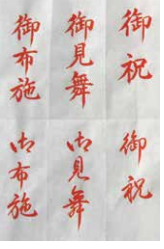 御祝
御見舞
御布施
御祝
御見舞
御布施